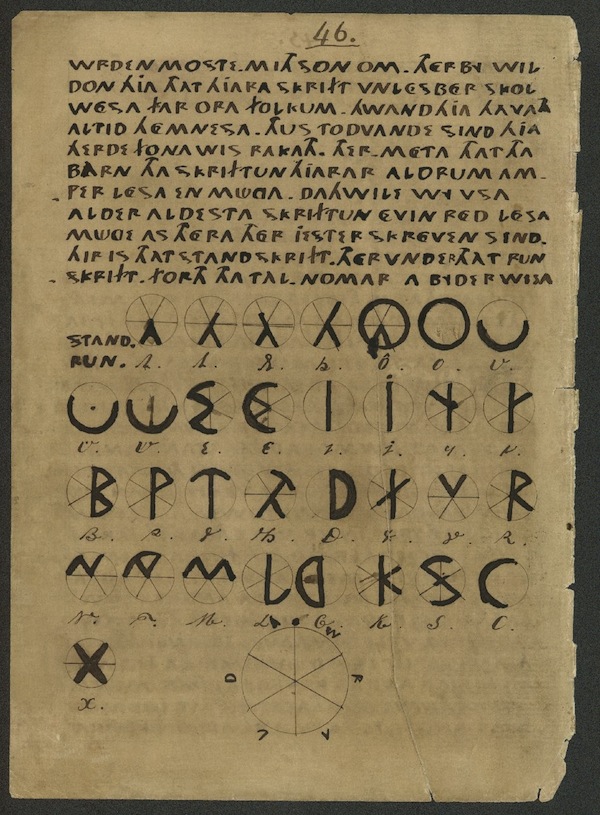 46.
WRDEN MOSTE. MITH SON OM. THER BY WIL
DON HIA THAT HIARA SKRIFT VNLESBER SKOL
WESA FAR ORA FOLKUM. HWAND HIA HAVATH
ALTID HEMNESA. THUS TODVANDE SIND HIA
HERDE FON A WIS RAKATH. THER META THAT THA
BARN THA SKRIFTUN HIARAR ALDRUM AM
PER LESA EN MUGA. DAHWILE WY VSA
ALDER ALDESTA SKRIFTUN EVIN RED LESA
MUGE AS THERA THER IESTER SKREVEN SIND.
HIR IS THAT STAND SKRIFT. THER VNDER THAT RUN
SKRIFT. FORTH THA TAL. NOMAR A BYDER WISA
STAND.
RUN.
B. P. T. TH. D.
N. NG. M. L. G. K. S. C.
X.